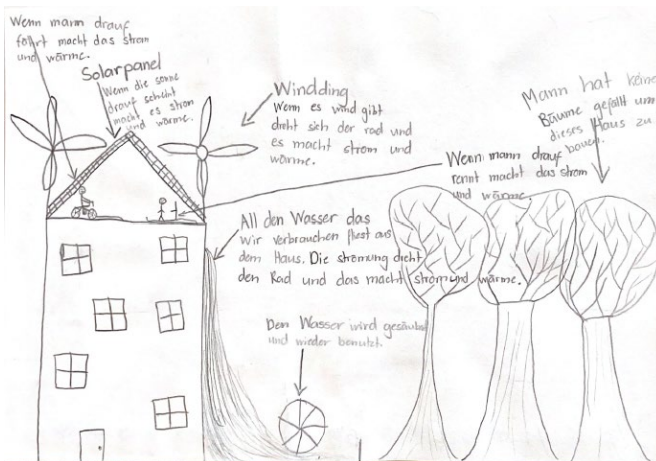 Wenn mann drauf
fährt macht das strom
und wärme.
Solarpanel
Wenn die sonne
drauf scheint
macht es strom
und wärme.
Windding
Wenn es wind gibt
dreht sich der rad und
es macht strom und
wärme.
Mann hat keine
Bäume gefällt um
dieses Haus zu
bauen.
Wenn mann drauf
rennt macht das strom
und wärme.
All den Wasser das
wir verbrauchen fliest aus
dem Haus. Die strömung dreht
den Rad und das macht strom und wärme.
Den Wasser wird gesäubert
und wieder benutzt.